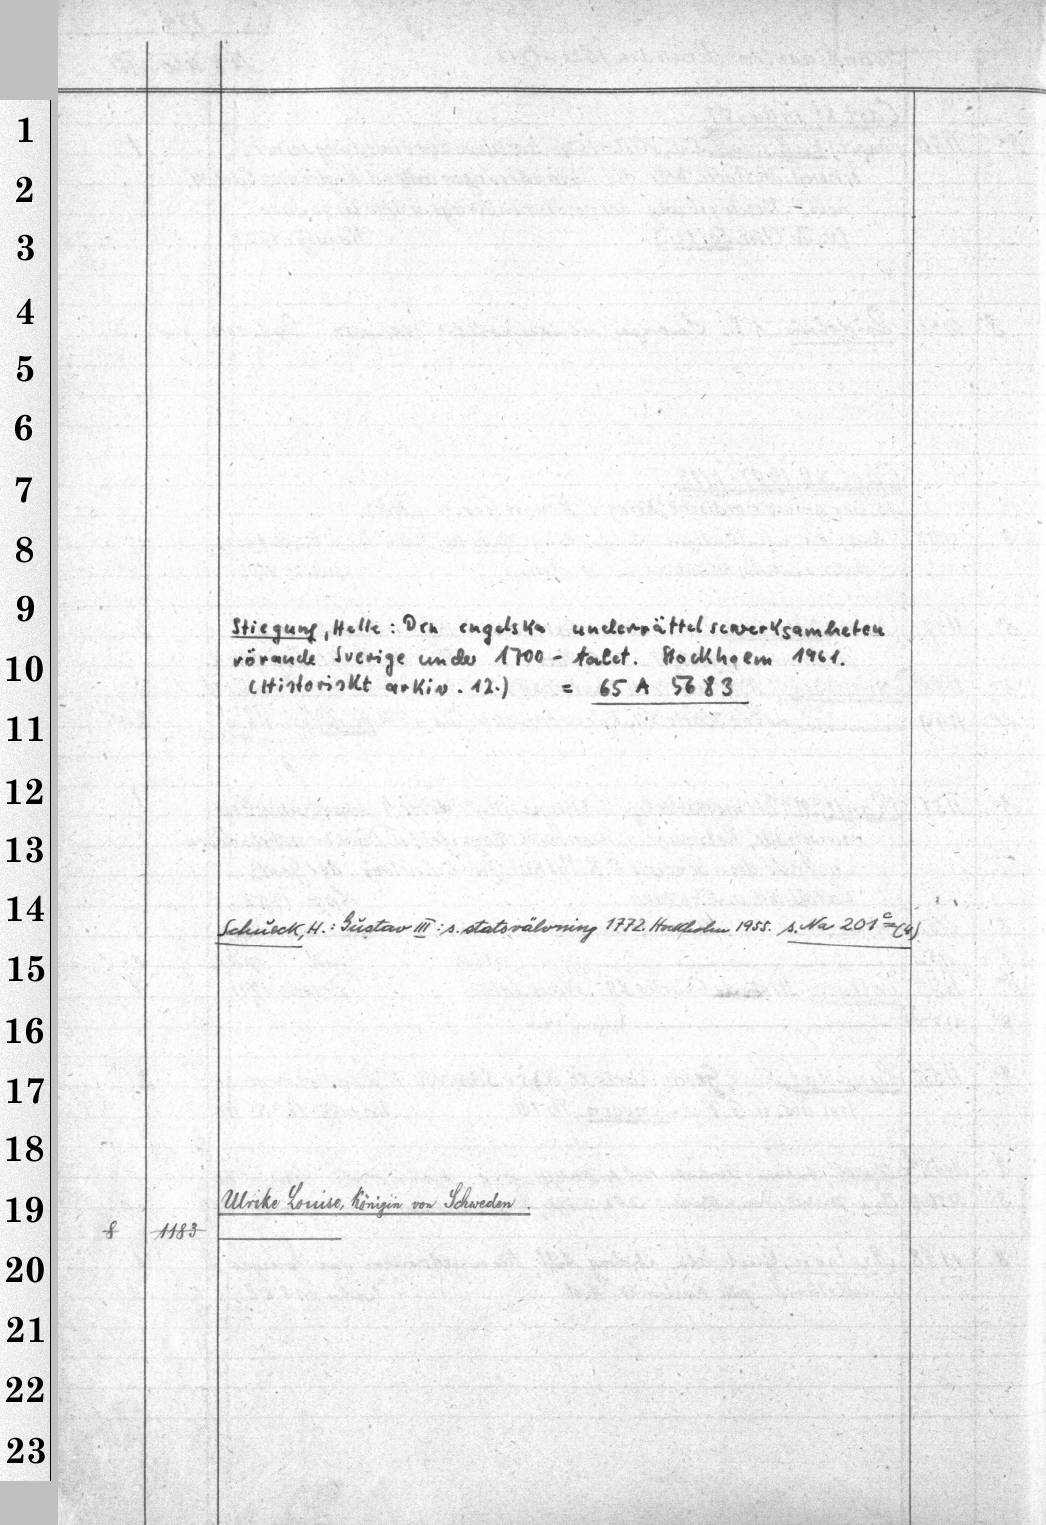 1
2
3
4
5
6
7
8
9
Stiegung, Helle: Den engelska underrättelseverksamheten
10
rörande Sverige under 1700-talet. Stockholm 1961.
(Historiskt arkiv. 12.) = 65 A 5683
11
12
13
14
Schück, H.: Gustav III:s statsvälvning 1772. Stockholm 1955. s. Na 201 c (4)
15
16
17
18
19
Ulrike Louise, Königin von Schweden.
8 1183
20
21
22
23